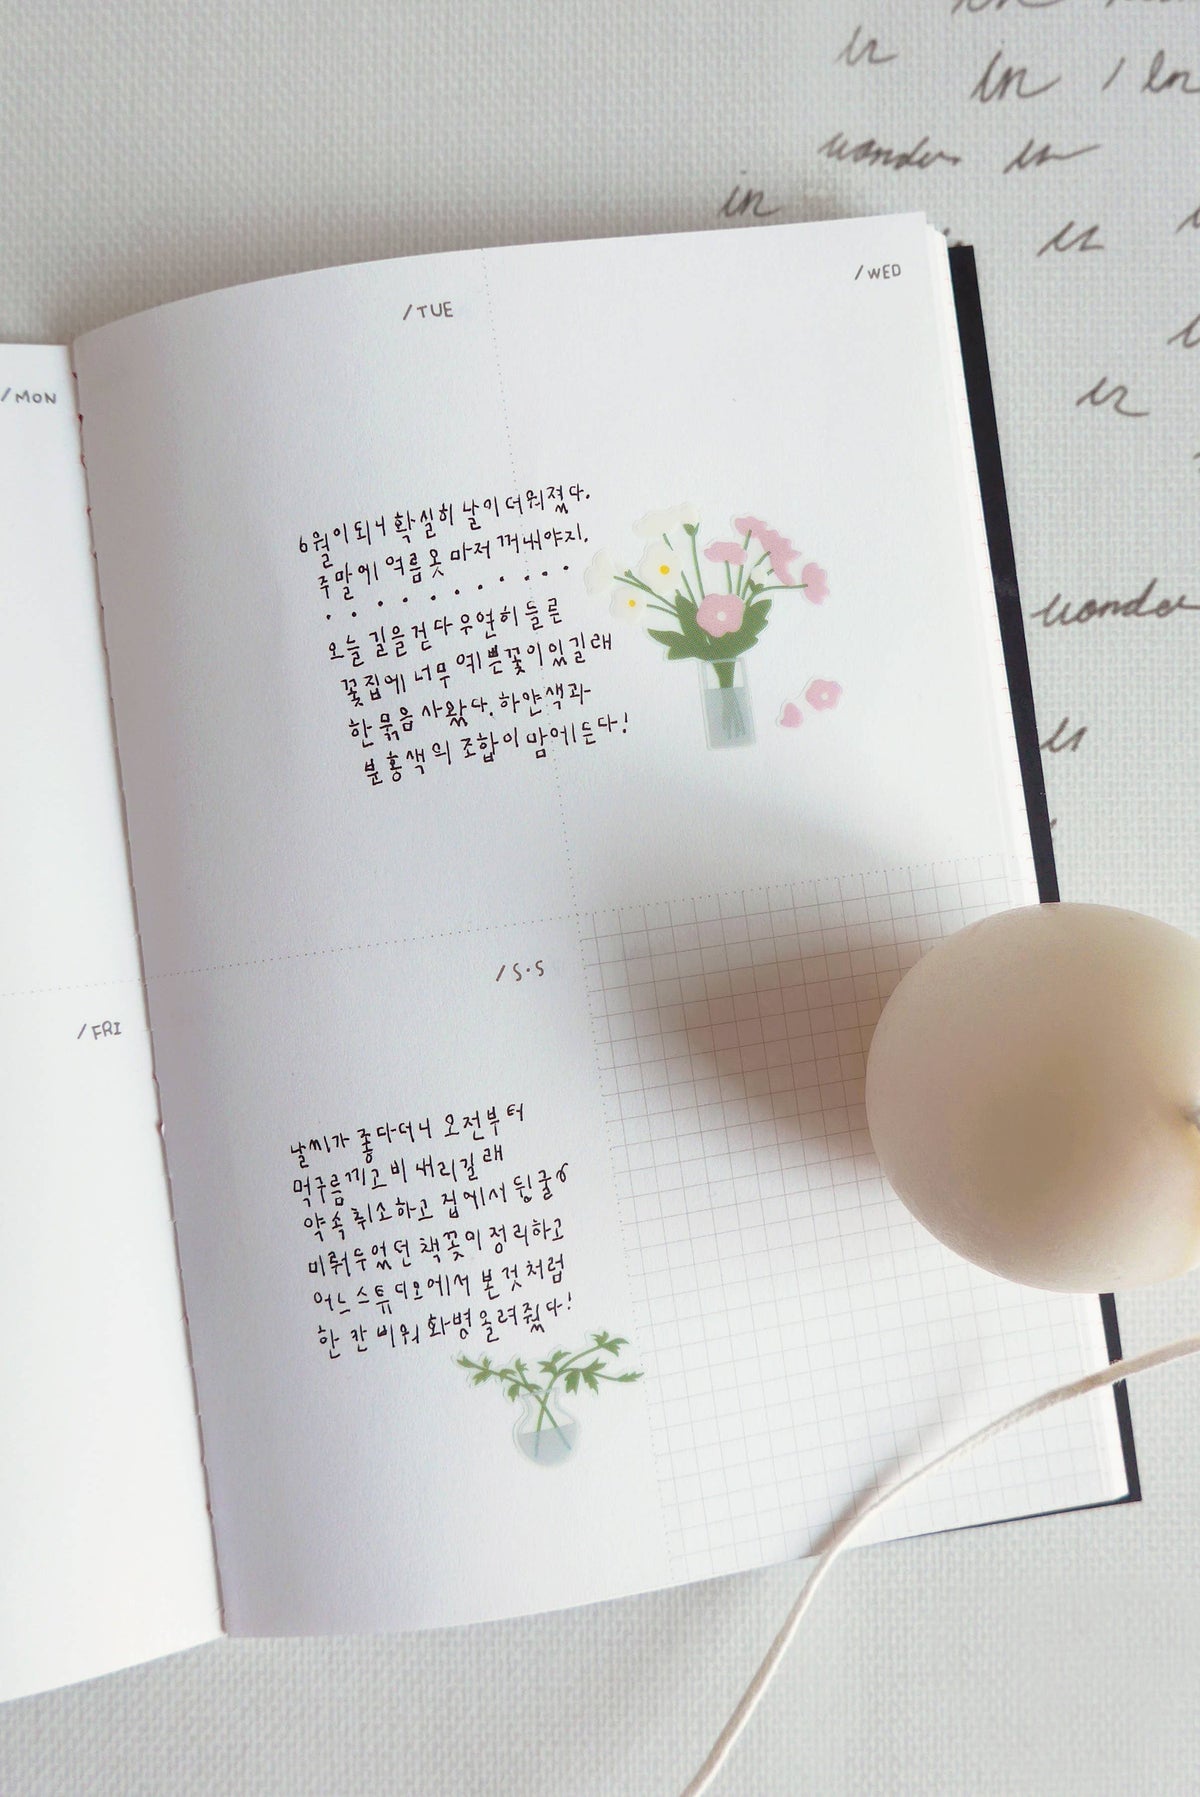 in
in / in
wander in
in
in
/WED
/TUE
/MON
in
6월이 되니 확실히 날이 더워졌다.
주말에 여름옷 마저 꺼내야지.
· · · · · · · · · ·
오늘 길을 걷다 우연히 들른
꽃집에 너무 예쁜 꽃이 있길래
한 묶음 사왔다. 하얀색과
분홍색의 조합이 맘에 든다!
wander
in
/S·S
/FRI
날씨가 좋다더니 오전부터
먹구름끼고 비 내리길래
약속 취소하고 집에서 뒹굴
미뤄두었던 책꽂이 정리하고
어느 스튜디오에서 본 것처럼
한 칸 비워 화병 올려줬다!